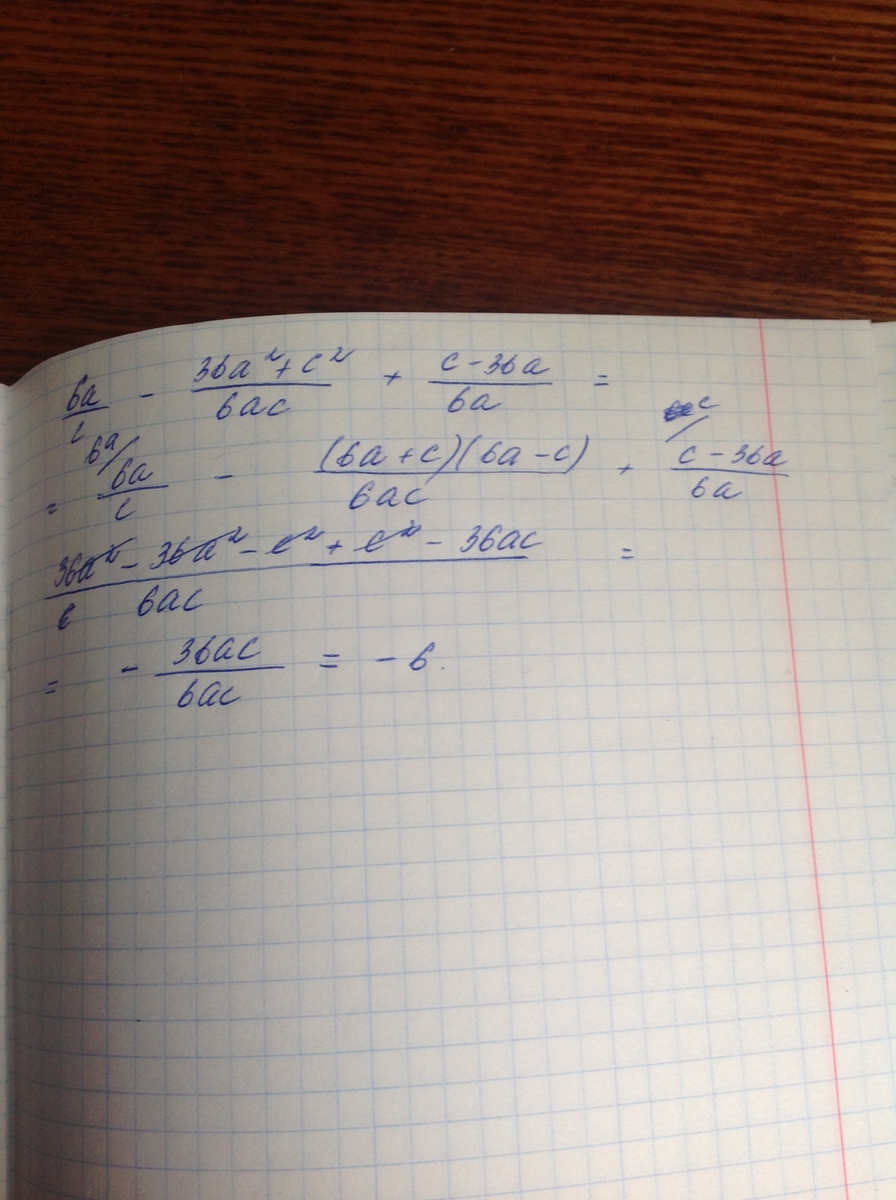 6a/c - (36a²+c²)/(6ac) + (c-36a)/(6a) =
= 6a/ 6a/c - ((6a+c)(6a-c))/(6ac) + c/ (c-36a)/(6a)
(36a² - 36a² - c² + c² - 36ac)/(6ac) =
= - 36ac/6ac = -6.